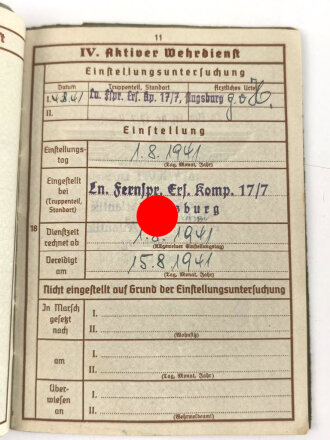 11
IV. Aktiver Wehrdienst
Einstellungsuntersuchung
Datum Truppenteil, Standort Ärztliches Urteil
I. 4.8.41 Ln. Fspr. Ers. Kp. 17/7, Augsburg
II.
Einstellung
Einstellungs-
tag 1.8.1941
(Tag, Monat, Jahr)
Eingestellt
bei
(Truppenteil,
Standort)
Ln. Fernspr. Ers. Komp. 17/7
sburg
18
Dienstzeit
rechnet ab 1.8.1941
(Allgemeiner Einstellungstag)
Vereidigt
am 15.8.1941
(Tag, Monat, Jahr)
Nicht eingestellt auf Grund der Einstellungsuntersuchung
In Marsch
gesetzt
nach
I.
II.
(Wohnsitz)
am
I.
II.
(Tag, Monat, Jahr)
Über-
wiesen
an
I.
II.
(Wehrmeldeamt)